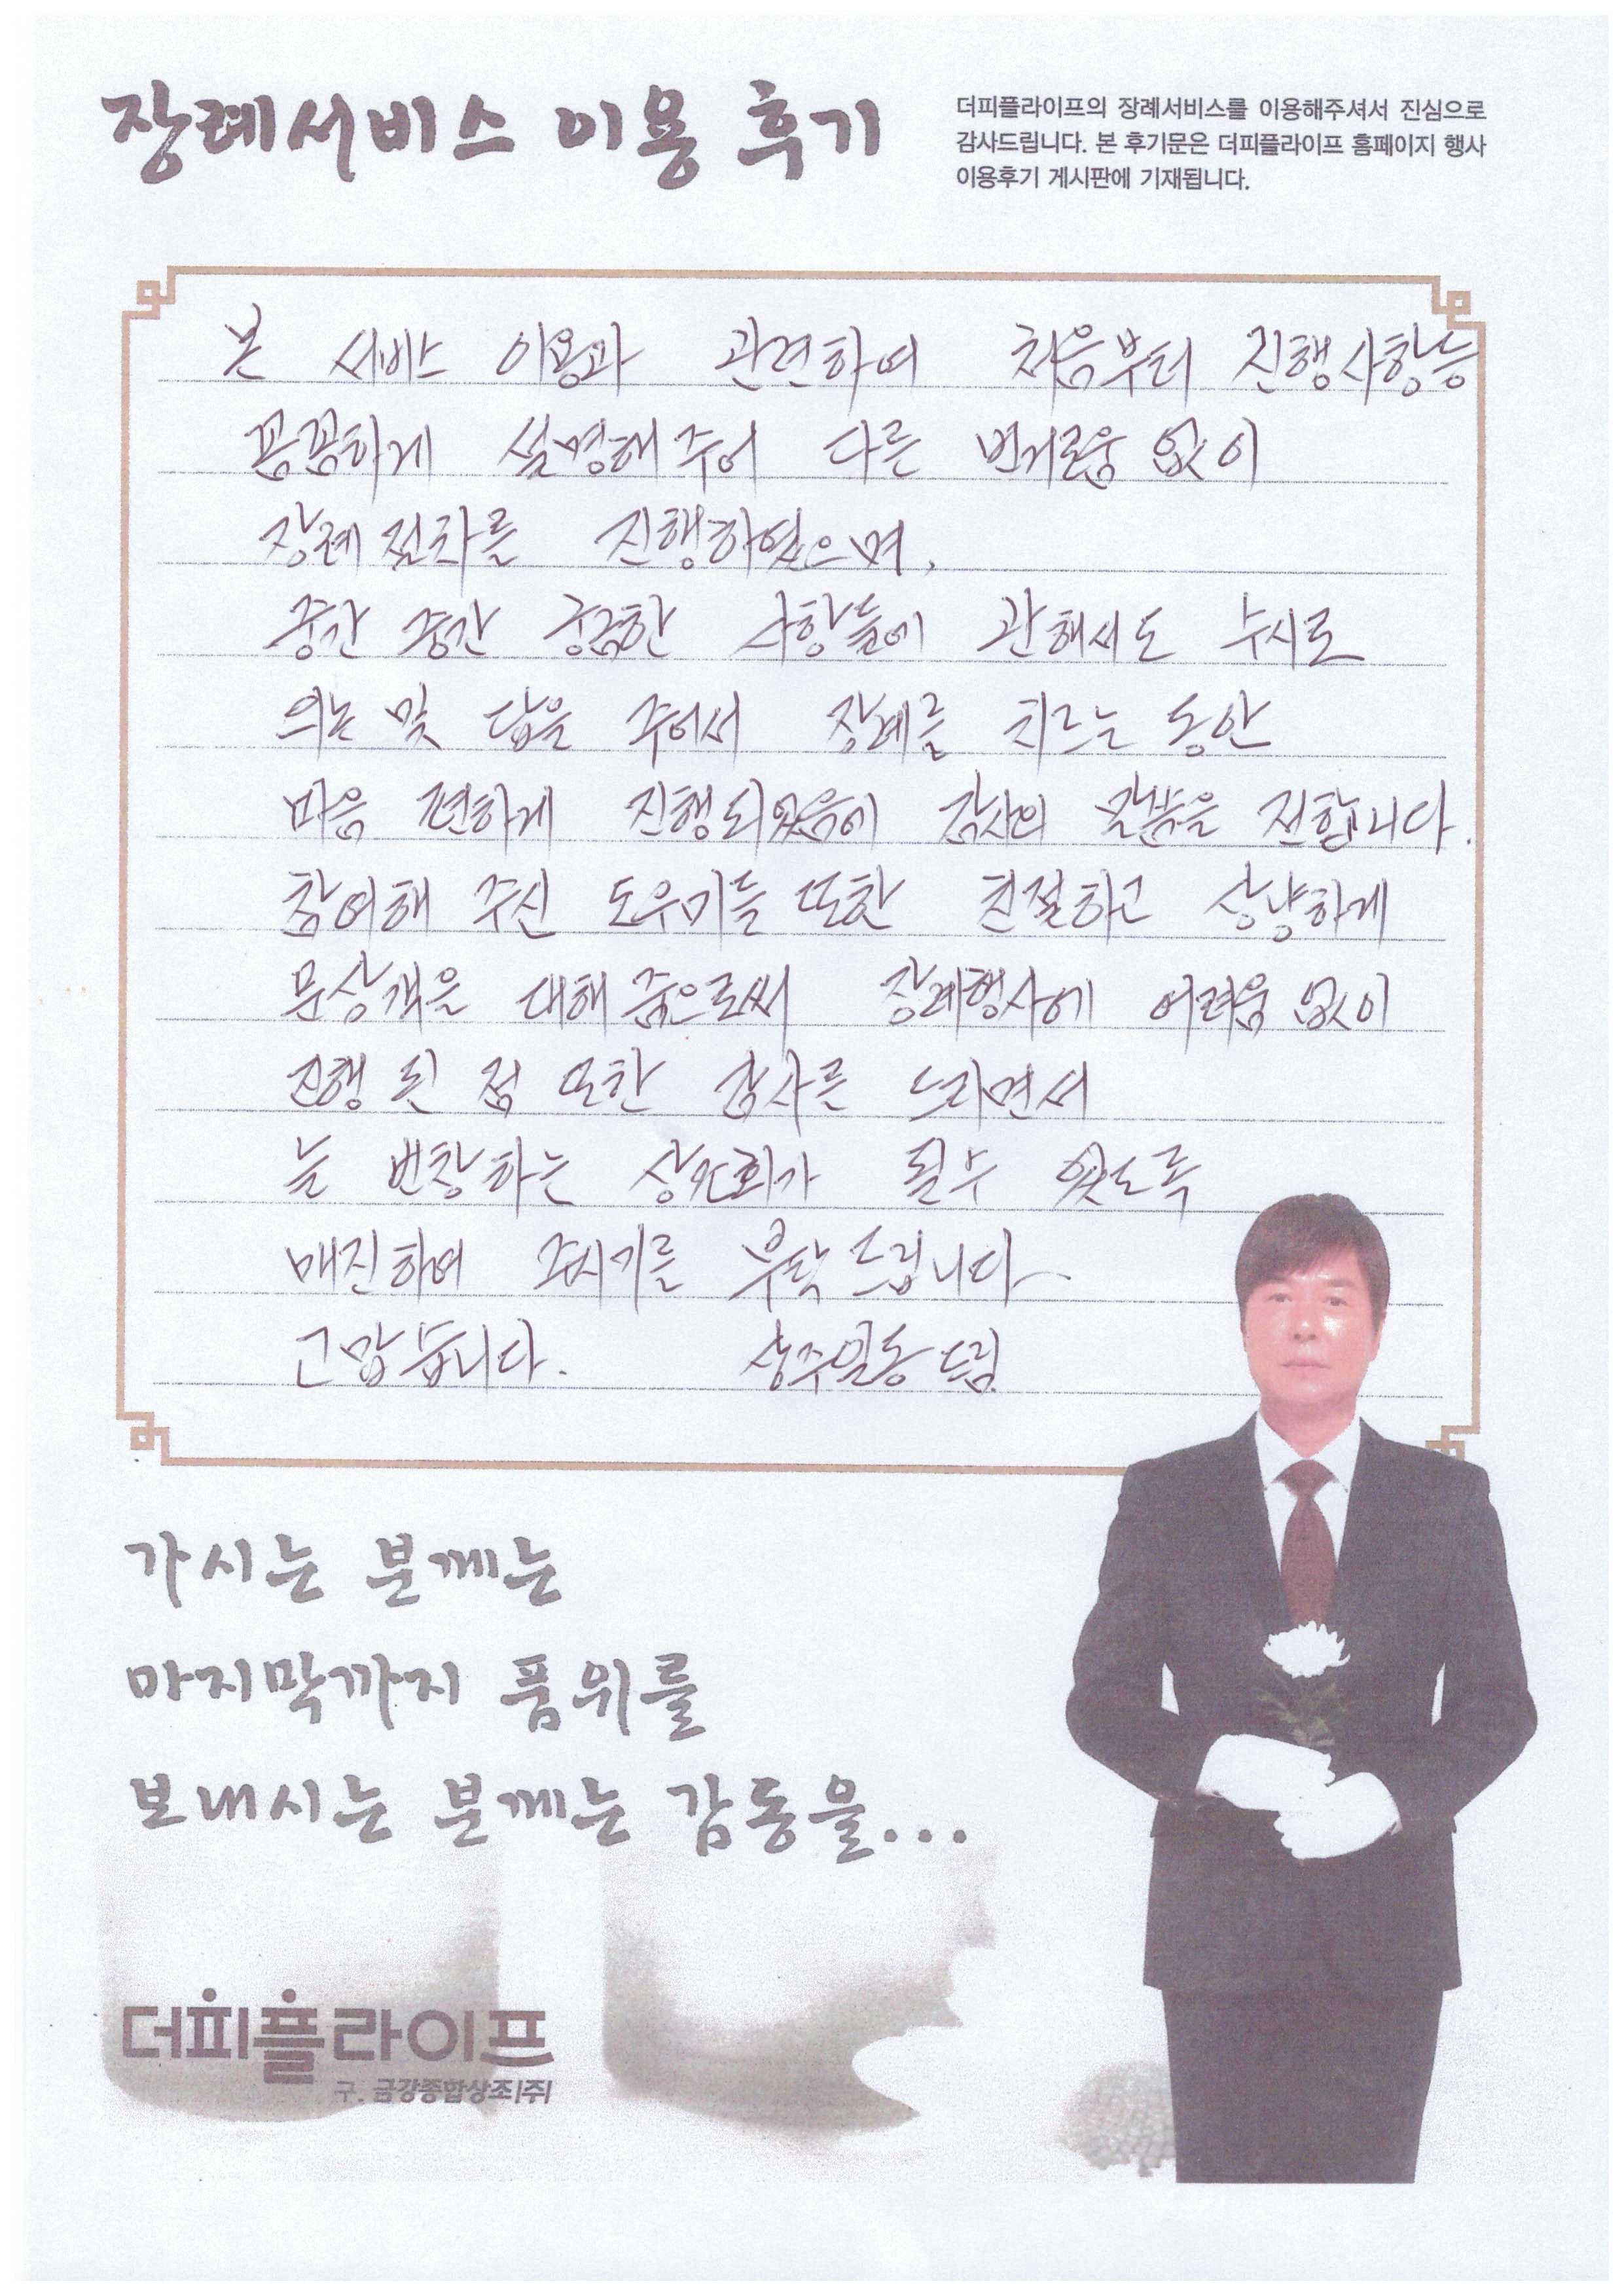 장례서비스 이용 후기
더피플라이프의 장례서비스를 이용해주셔서 진심으로
감사드립니다. 본 후기문은 더피플라이프 홈페이지 행사
이용후기 게시판에 기재됩니다.
본 서비스 이용과 관련하여 처음부터 진행사항등
꼼꼼하게 설명해 주어 다른 번거로움 없이
장례 절차를 진행하였으며,
중간 중간 궁금한 사항들에 관해서도 수시로
의논 및 답을 주어서 장례를 치르는 동안
마음 편하게 진행되었음에 감사의 말씀을 전합니다.
참여해 주신 도우미들 또한 친절하고 상냥하게
문상객을 대해 줌으로써 장례행사에 어려움 없이
진행 된 점 또한 감사를 느끼면서
늘 번창하는 상조회가 될수 있도록
매진하여 주시기를 부탁드립니다.
고맙습니다. 상주일동 드림
가시는 분께는
마지막까지 품위를
보내시는 분께는 감동을...
더피플라이프
구. 금강종합상조|주|